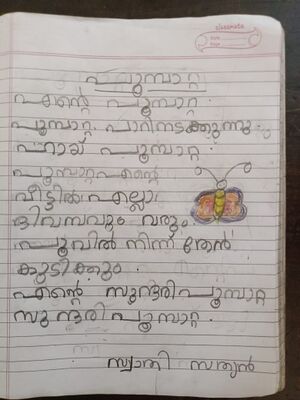 classmate
Date
Page
പൂമ്പാറ്റ
എന്റെ പൂമ്പാറ്റ.
പൂമ്പാറ്റ. പാറിനടക്കുന്നു.
ഹായ് പൂമ്പാറ്റ.
പൂമ്പാറ്റഎന്റെ
വീട്ടിൽ എല്ലാ
ദിവസവും വരും.
പൂവിൽ നിന്ന് തേൻ
കുടിക്കും.
എന്റെ സുന്ദരിപൂമ്പാറ്റ
സുന്ദരി പൂമ്പാറ്റ.
സ്വാതി സത്യൻ